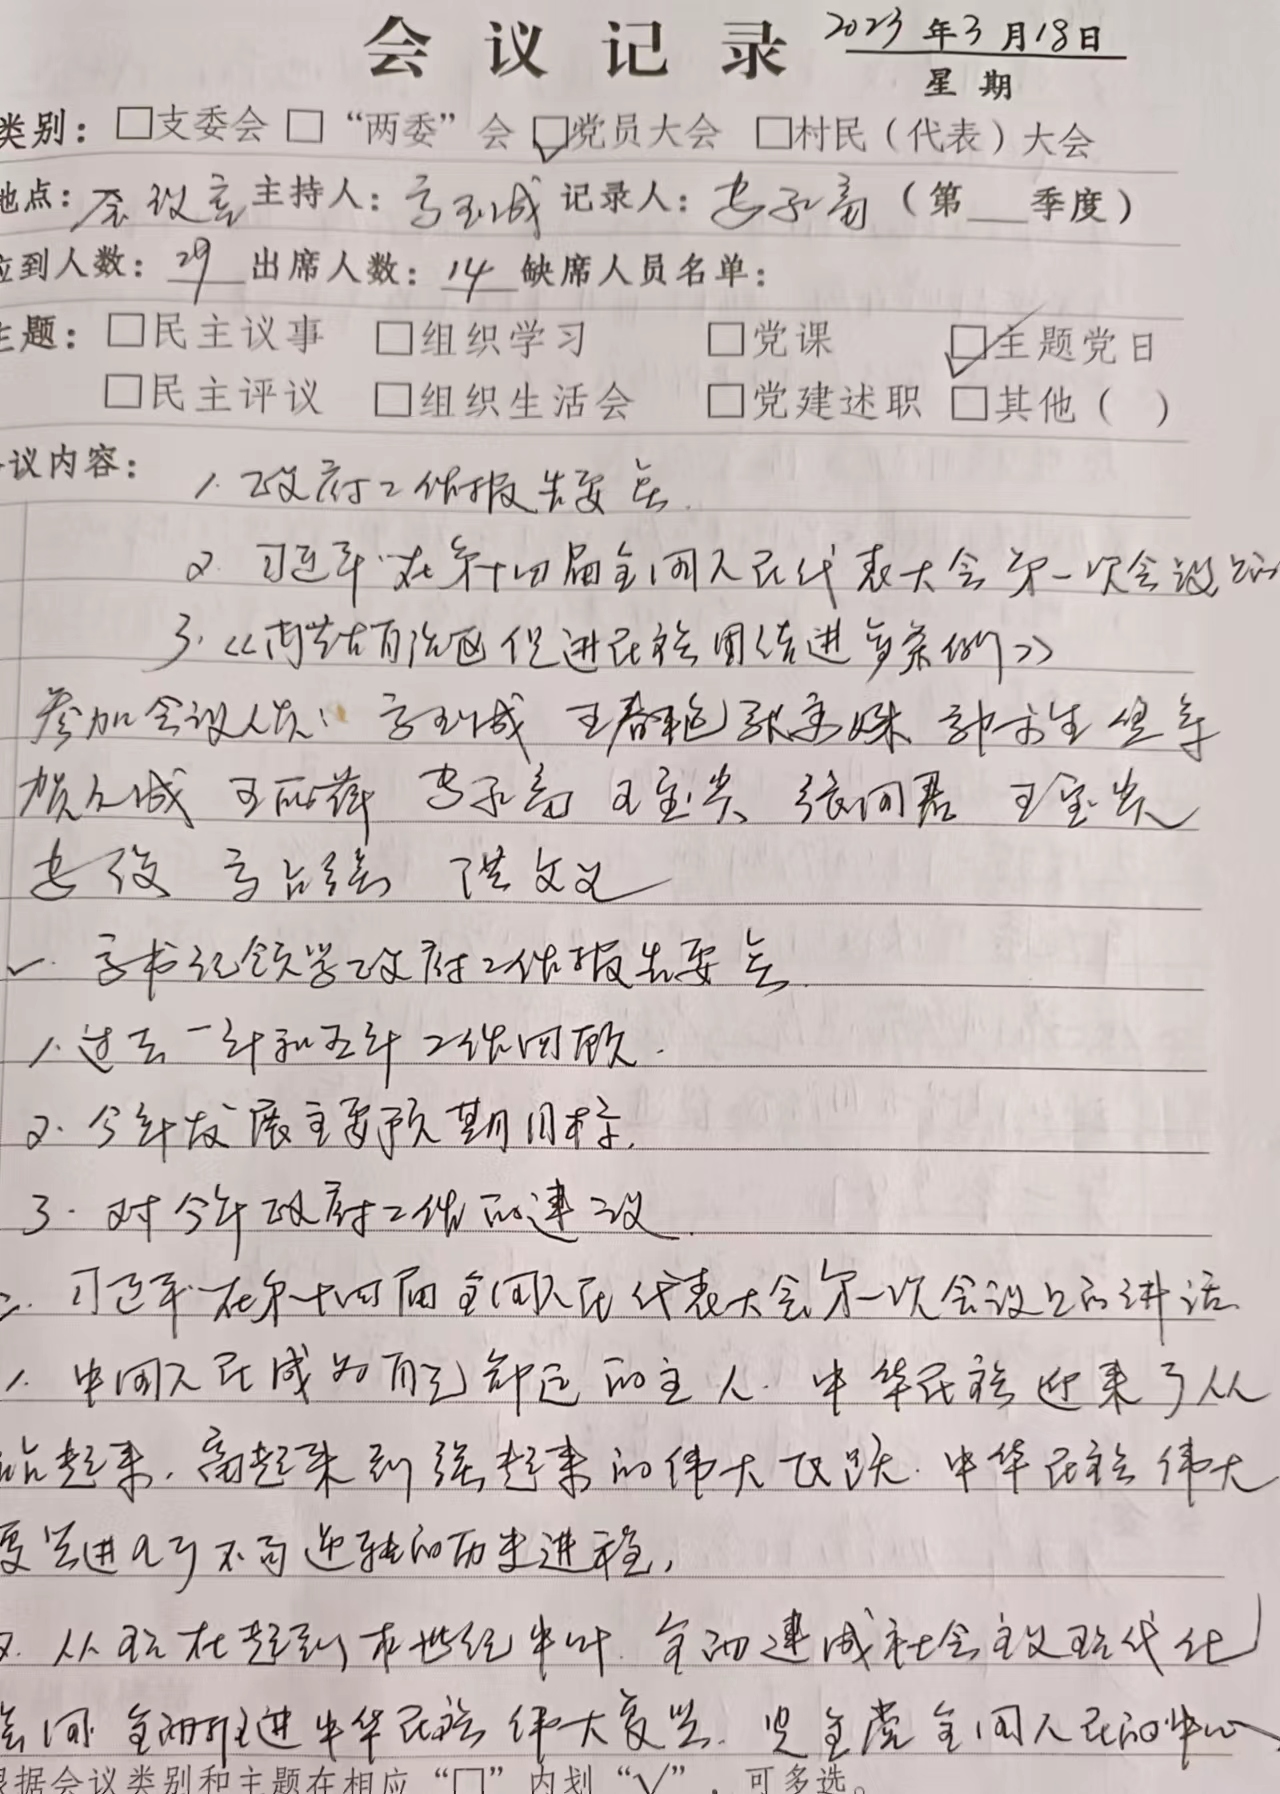 会议记录 2023年3月18日
星期
类别：□支委会 □“两委”会 □党员大会 □村民（代表）大会
地点：会议室 主持人：高玉成 记录人：（第 季度）
应到人数：29 出席人数：14 缺席人员名单：
主题：□民主议事 □组织学习 □党课 □主题党日
□民主评议 □组织生活会 □党建述职 □其他（ ）
议内容：1.政府工作报告要点.
2. 习近平在第十四届全国人民代表大会第一次会议上的
3.《内蒙古自治区促进民族团结进步条例》
参加会议人员：高玉成 王春艳
王宝贵 王宝贵
安俊 洪文义
一. 高书记领学政府工作报告要点.
1.过去一年和五年工作回顾.
2.今年发展主要预期目标.
3.对今年政府工作的建议.
二. 习近平在第十四届全国人民代表大会第一次会议上的讲话.
1. 中国人民成为自己命运的主人.中华民族迎来了从
站起来.富起来到强起来的伟大飞跃.中华民族伟大
复兴进入了不可逆转的历史进程,
2. 从现在起到本世纪中叶.全面建成社会主义现代化
强国 全面推进中华民族伟大复兴.是全党全国人民的中心
根据会议类别和主题在相应“□”内划“√”，可多选。